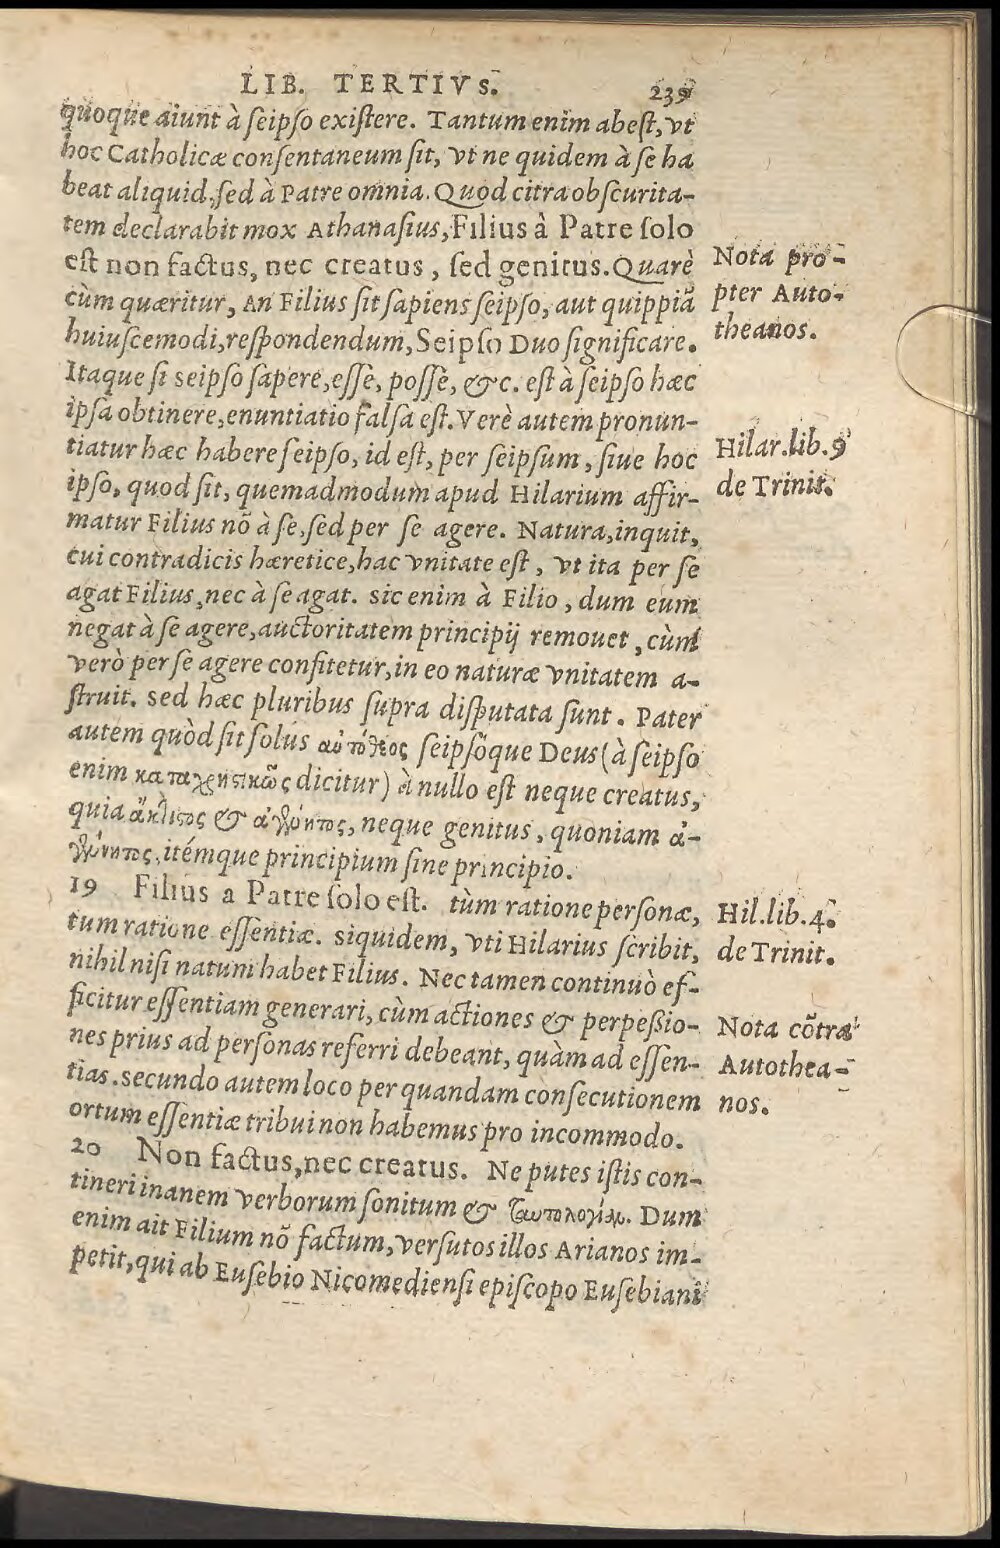 LIB. TERTIVS. 239
quoque aiunt à seipso existere. Tantum enim abest, vt
hoc Catholicæ consentaneum sit, vt ne quidem à se ha
beat aliquid, sed à Patre omnia. Quod citra obscurita-
tem declarabit mox Athanasius, Filius à Patre solo
est non factus, nec creatus, sed genitus. Quarè
cùm quæritur, An Filius sit sapiens seipso, aut quippiã
huiuscemodi, respondendum, Seipso Duo significare.
Itaque si seipso sapere, esse, posse, &c. est à seipso hæc
ipsa obtinere, enuntiatio falsa est. Verè autem pronun-
tiatur hæc habere seipso, id est, per seipsum, siue hoc
ipso, quod sit, quemadmodum apud Hilarium affir-
matur Filius nõ à se, sed per se agere. Natura, inquit,
cui contradicis hæretice, hac vnitate est, vt ita per se
agat Filius, nec à se agat. sic enim à Filio, dum eum
negat à se agere, auctoritatem principij remouet, cùm
verò per se agere confitetur, in eo naturæ vnitatem a-
struit. sed hæc pluribus supra disputata sunt. Pater
autem quòd sit solus αὐτόθεος seipsóque Deus (à seipso
enim καταχρηστικῶς dicitur) à nullo est neque creatus,
quia ἄκτιστος & ἀγένητος, neque genitus, quoniam ἀ-
γέννητος, itémque principium sine principio.
19 Filius a Patre solo est. tùm ratione personæ,
tum ratione essentiæ. siquidem, vti Hilarius scribit,
nihil nisi natum habet Filius. Nec tamen continuò ef-
ficitur essentiam generari, cùm actiones & perpessio-
nes prius ad personas referri debeant, quàm ad essen-
tias. secundo autem loco per quandam consecutionem
ortum essentiæ tribui non habemus pro incommodo.
20 Non factus, nec creatus. Ne putes istis con-
tineri inanem verborum sonitum & ταυτολογίαν. Dum
enim ait Filium nõ factum, versutos illos Arianos im-
petit, qui ab Eusebio Nicomediensi episcopo Eusebiani
Nota pro-
pter Auto-
theanos.
Hilar. lib. 9
de Trinit.
Hil. lib. 4.
de Trinit.
Nota cõtra
Autothea-
nos.